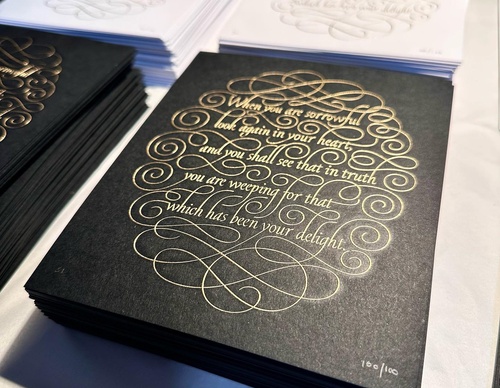 When you are sorrowful
look again in your heart,
and you shall see that in truth
you are weeping for that
which has been your delight.
100/100